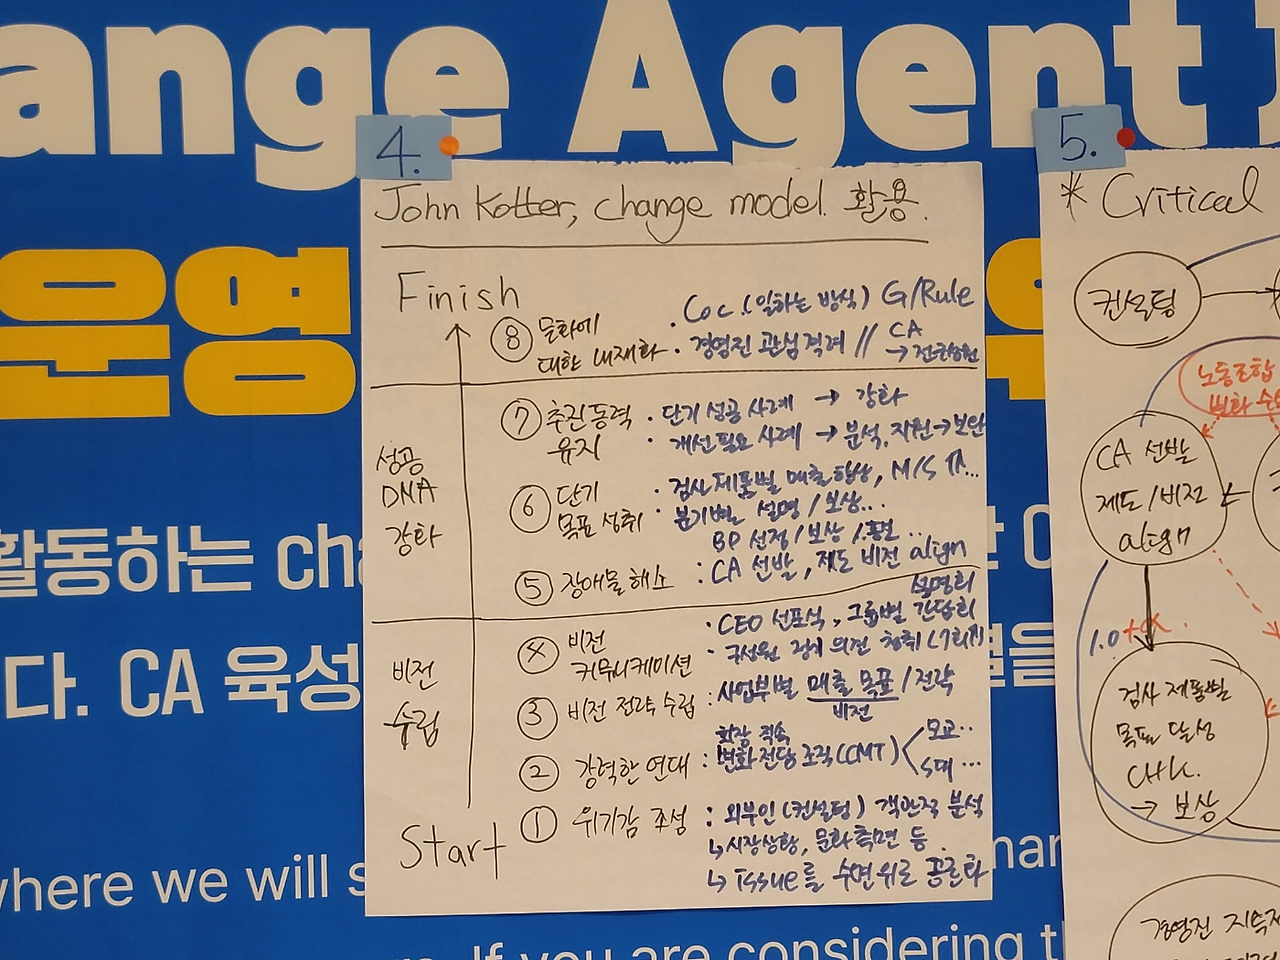 ange Agent
운영
활동하는 cha
다. CA 육성
where we will s
If you are considering t
4.
John Kotter, change model 활용.
Finish
⑧ 문화에 대한 내재화
· CoC (일하는 방식) G/Rule
· 경영진 관심 격려 // CA
→
성공 DNA 강화
⑦ 추진동력 유지
· 단기 성공 사례 → 강화
· 개선필요 사례 → 분석, 지원 → 보완
⑥ 단기 목표 성취
· 검사 제품별 매출 향상, M/S
분기별 설명 / 보상...
BP 선정 / 보상 /
⑤ 장애물 해소 : CA 선발, 제도 비전 align
비전 수립
④ 비전 커뮤니케이션
설명회
· CEO 선포식, 그룹별 간담회
· 구성원 의견 청취
③ 비전 전략 수립 : 사업부별 매출 목표 / 전략
비전
회장 직속
② 강력한 연대 : 변화 전담 조직 (CMT)
① 위기감 조성 : 외부인 (컨설팅) 객관적 분석
↳ 시장상황, 문화 측면 등.
↳ Issue를 수면 위로 공론화
Start
5.
* Critical
컨설팅
노동조합
변화
CA 선발
제도 / 비전
align
1.0 +α.
검사 제품별
목표 달성
CHK.
→ 보상
경영진